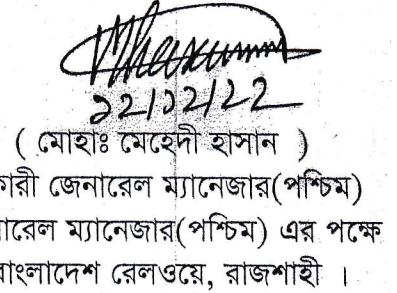 ১২/১২/২২
( মোহাঃ মেহেদী হাসান )
কারী জেনারেল ম্যানেজার(পশ্চিম)
নারেল ম্যানেজার(পশ্চিম) এর পক্ষে
বাংলাদেশ রেলওয়ে, রাজশাহী ।